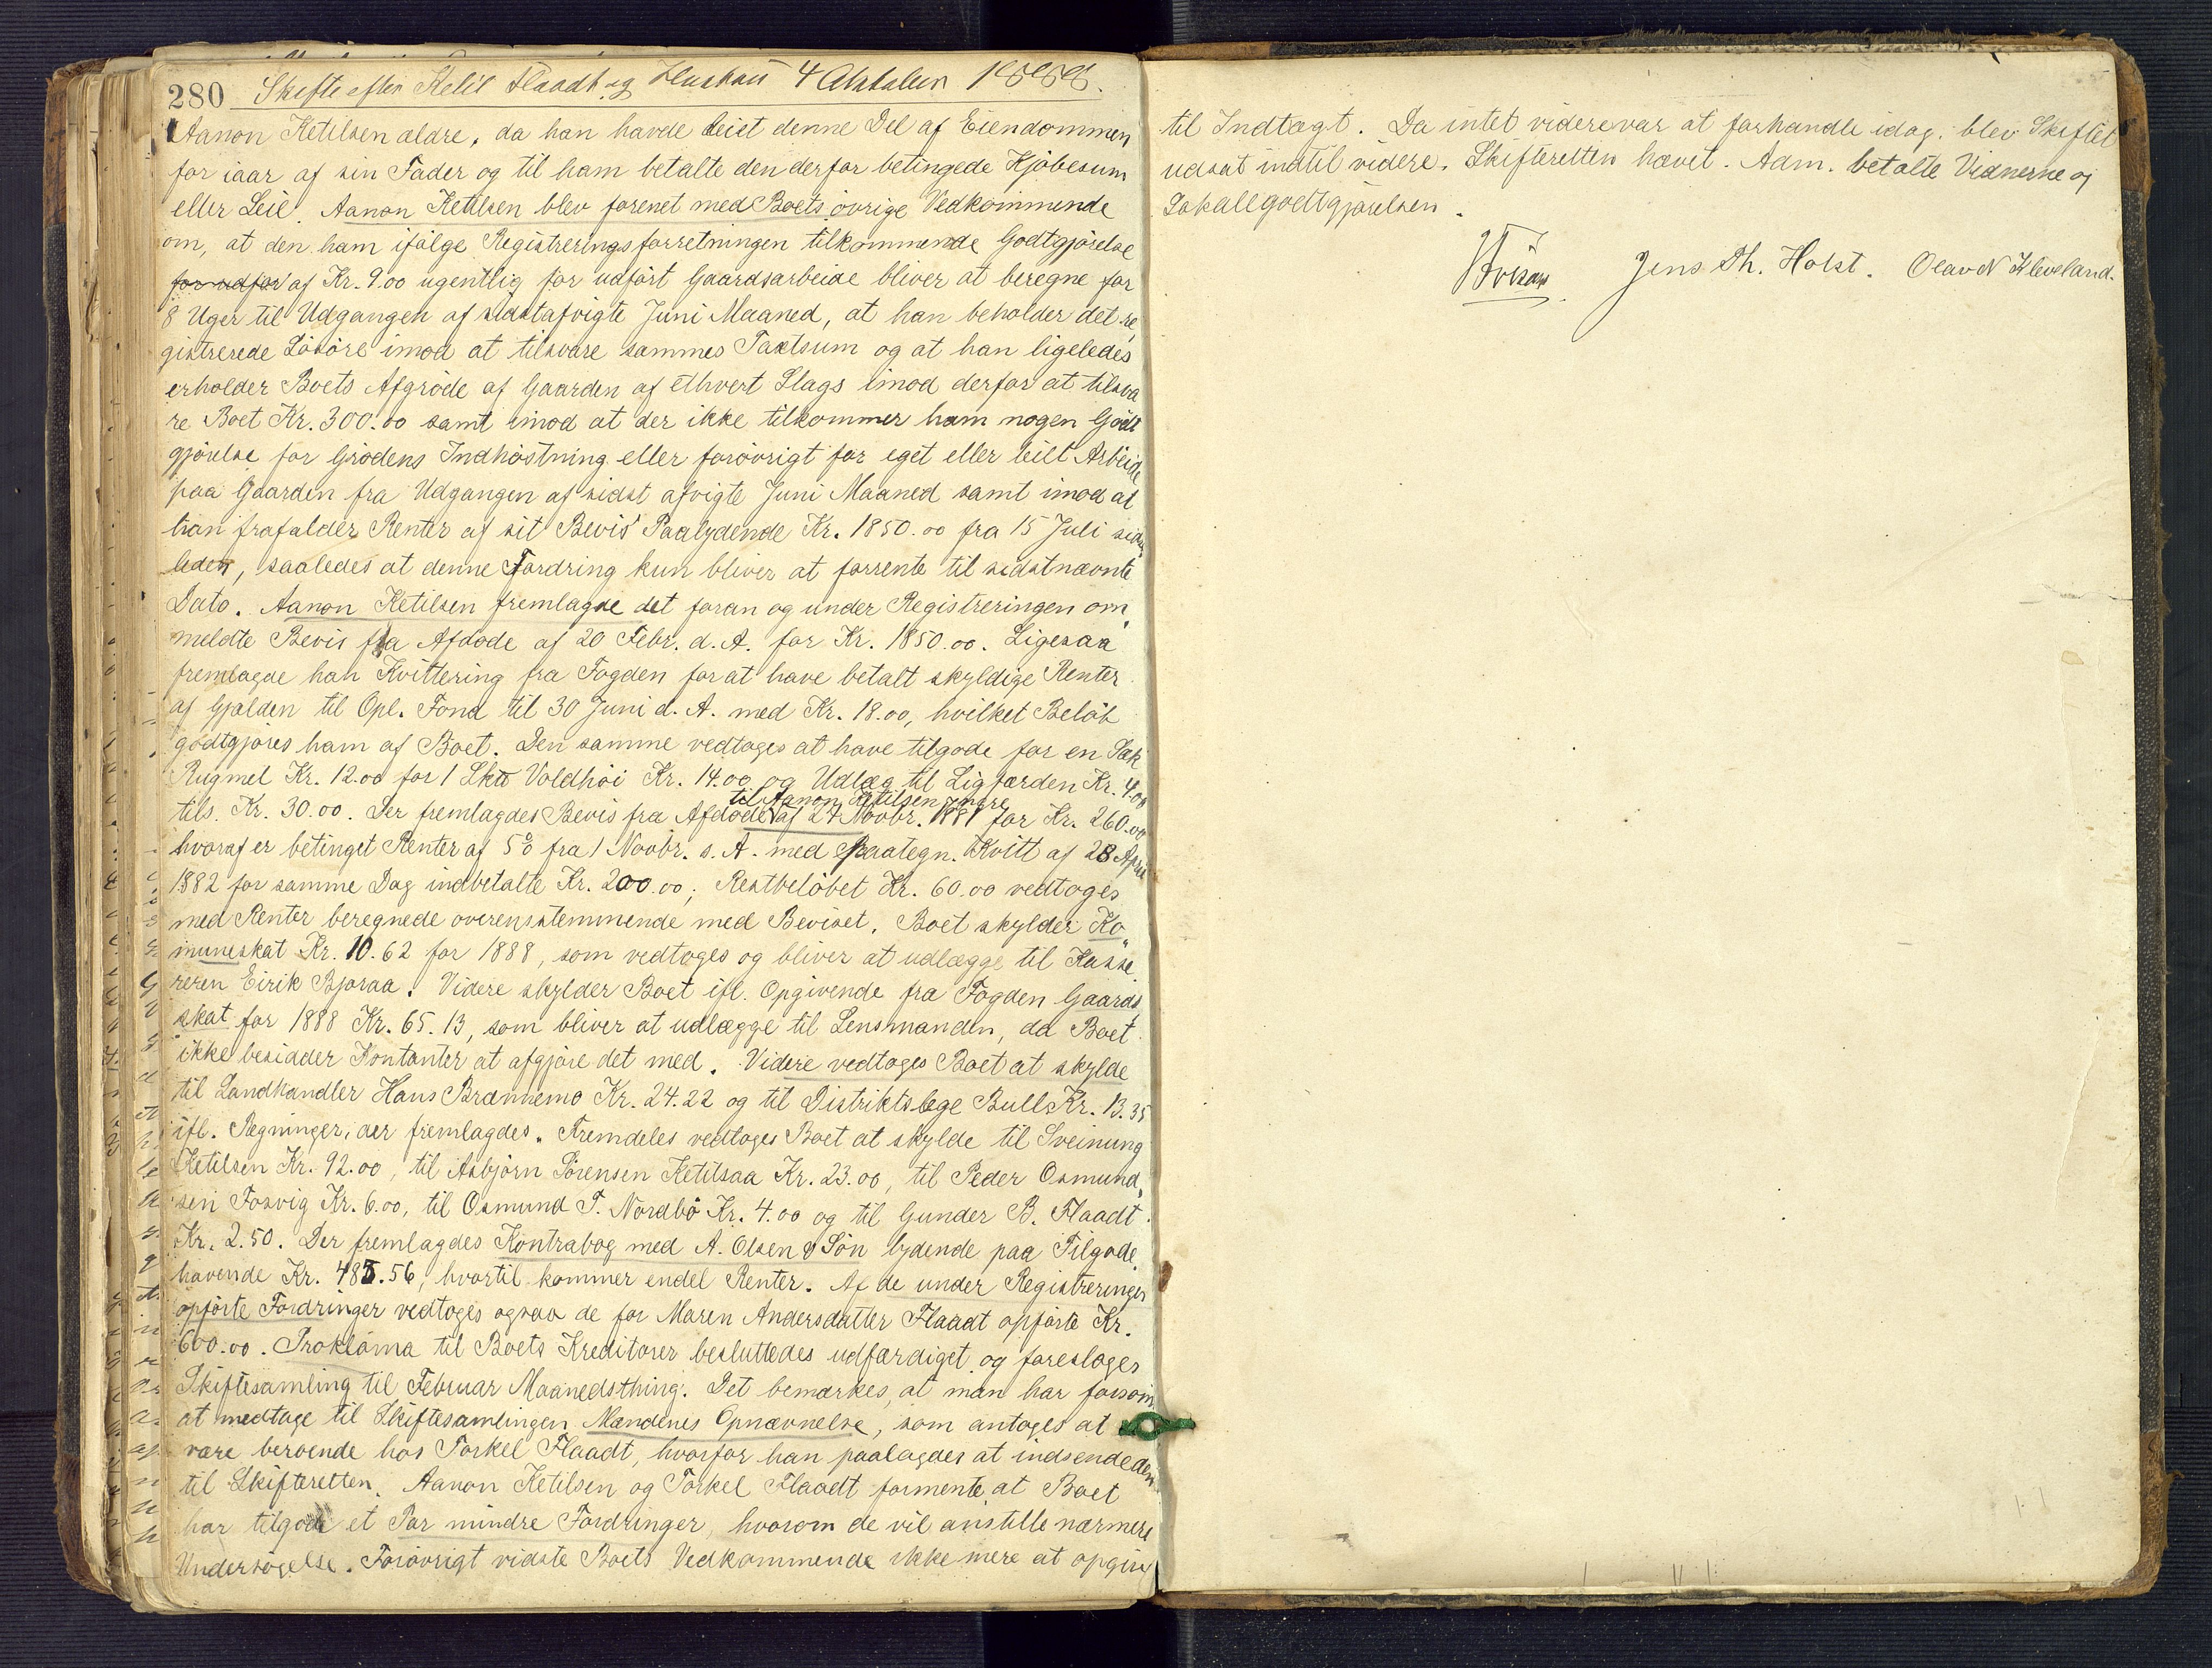 280 Skifte efter Ketil Flaadt og Hustru 4 Oktober 1888.
Aanon Ketilsen ældre, da han havde leiet denne Del af Eiendommen
for iaar af sin Fader og til ham betalte den derfor betingede Kjöbesum
eller Leie. Aanon Ketilsen blev forenet med Boets övrige Vedkommende
om, at den ham ifölge Registreringsforretningen tilkommende Godtgjörelse
for udför af Kr. 9.00 ugentlig for udfört Gaardsarbeide bliver at beregne for
8 Uger til Udgangen af sidstafvigte Juni Maaned, at han beholder det re„
gistrerede Lösöre imod at tilsvare sammes Taxtsum og at han ligeledes
erholder Boets Afgröde af Gaarden af ethvert Slags imod derfor at tilsva
re Boet Kr. 300.00 samt imod at der ikke tilkommer ham nogen Godt
gjörelse for Grödens Indhöstning eller forövrigt for eget eller leiet Arbeide
paa Gaarden fra Udgangen af sidst afvigte Juni Maaned samt imod at
han frafalder Renter af sit Bevis' Paalydende Kr. 1850.00 fra 15 Juli sidst
leden, saaledes at denne Fordring kun bliver at forrente til sidstnævnte
Dato. Aanon Ketilsen fremlagde det foran og under Registreringen om„
meldte Bevis fra Afdøde af 20 Febr. d. A. for Kr. 1850.00. Ligesaa
fremlagde han Kvittering fra Fogden for at have betalt skyldige Renter
af Gjælden til Opl. Fond til 30 Juni d. A. med Kr. 18.00, hvilket Belöb
godtgjöres ham af Boet. Den samme vedtoges at have tilgode for en Sæk
Rugmel Kr. 12.00 for 1 Sk℔ Voldhöi Kr. 14.00 og Udlæg til Ligfærden Kr. 4.00
til Aanon Ketilsen yngre
tils. Kr. 30.00. Der fremlagdes Bevis fra Afdöde af 27 Novbr. 1881 for Kr. 260.00
hvoraf er betinget Renter af 5% fra 1 Novbr. s. A. med Paategn. Kvitt af 28 April
1882 for samme Dag indbetalte Kr. 200.00; Restbelöbet Kr. 60.00 vedtoges
med Renter beregnede overensstemmende med Beviset. Boet skylder Ko„
muneskat Kr. 10.62 for 1888, som vedtoges og bliver at udlægge til Kasse„
reren Eirik Bjoraa. Videre skylder Boet ifl. Opgivende fra Fogden Gaards„
skat for 1888 Kr. 65.13, som bliver at udlægge til Lensmanden, da Boet
ikke besidder Kontanter at afgjöre det med. Videre vedtoges Boet at skylde
til Landhandler Hans Brænnemo Kr. 24.22 og til Distriktslæge Bull Kr. 13.35
ifl. Regninger, der fremlagdes. Fremdeles vedtoges Boet at skylde til Sveinung
Ketilsen Kr. 92.00, til Asbjörn Sörensen Ketilsaa Kr. 23.00, til Peder Osmund„
sen Fosvig Kr. 6.00, til Osmund T. Nordbö Kr. 4.00 og til Gunder B. Flaadt
Kr. 2.50. Der fremlagdes Kontrabog med A. Olsen & Sön lydende paa Tilgode„
havende Kr. 485.56, hvortil kommer endel Renter. Af de under Registreringen
opförte Fordringer vedtoges ogsaa de for Maren Andersdatter Flaadt opförte Kr.
600.00. Proklama til Boets Kreditorer besluttedes udfærdiget og foresloges
Skiftesamling til Februar Maanedsthing. Det bemærkes, at man har forsömt
at medtage til Skiftesamlingen Mændenes Opnævnelse, som antoges at
være beroende hos Torkel Flaadt, hvorfor han paalagdes at indsende den
til Skifteretten. Aanon Ketilsen og Torkel Flaadt formente at Boet
har tilgode et Par mindre Fordringer, hvorom de vil anstille nærmere
Undersögelse. Forövrigt vidste Boets Vedkommende ikke mere at opgive
til Indtægt. Da intet videre var at forhandle idag, blev Skiftet
udsat indtil videre. Skifteretten hævet. Adm. betalte Vidnerne og
Lokalegodtgjörelsen.
Jens Th. Holst. Olav N Kleveland.